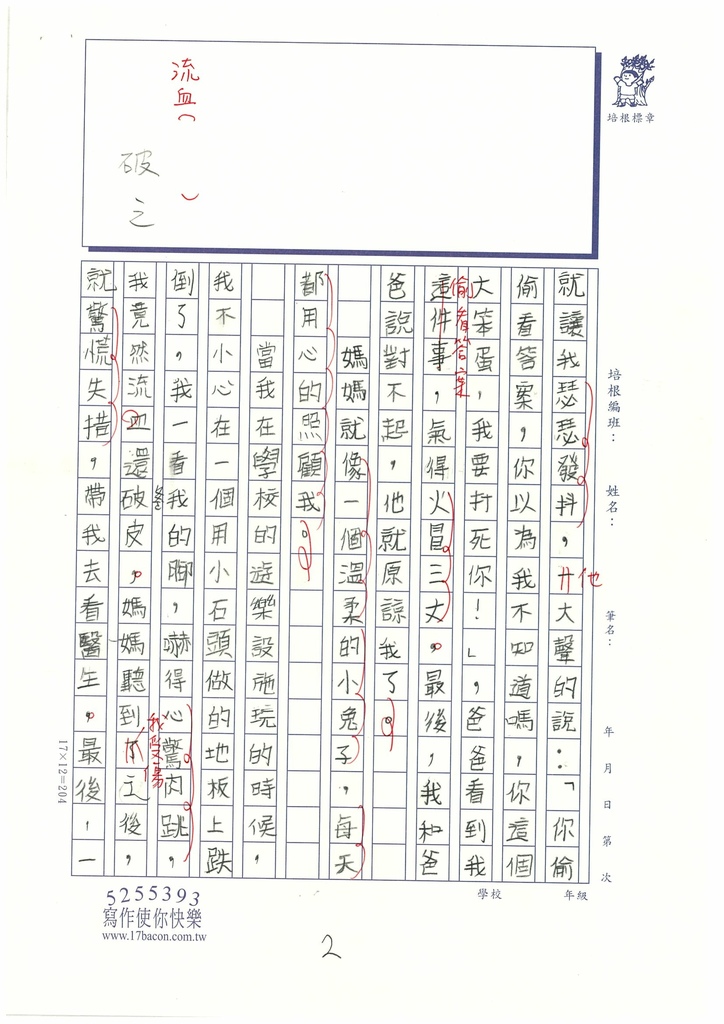 流血（ ）
破
之
培根標章
培根編班：
姓名：
筆名：
年 月 日 第 次
學校
年級
就讓我瑟瑟發抖，他大聲的說：「你偷
偷看答案，你以為我不知道嗎，你這個
大笨蛋，我要打死你！」，爸爸看到我
偷看答案
這件事，氣得火冒三丈。最後，我和爸
爸說對不起，他就原諒我了。
媽媽就像一個溫柔的小兔子，每天
都用心的照顧我。
當我在學校的遊樂設施玩的時候，
我不小心在一個用小石頭做的地板上跌
倒了，我一看我的腳，嚇得心驚肉跳，
我竟然流血還破皮，媽媽聽到了之後，
爸
我受傷
就驚慌失措，帶我去看醫生。最後，一
17×12=204
5255393
寫作使你快樂
www.17bacon.com.tw
2